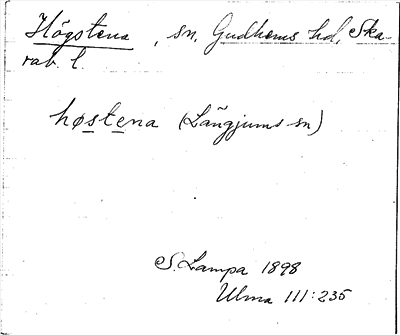 Högstena, sn, Gudhems hd, Ska-
rab. l.
høstena (Långjums sn)
S. Lampa 1898
Ulma 111:235